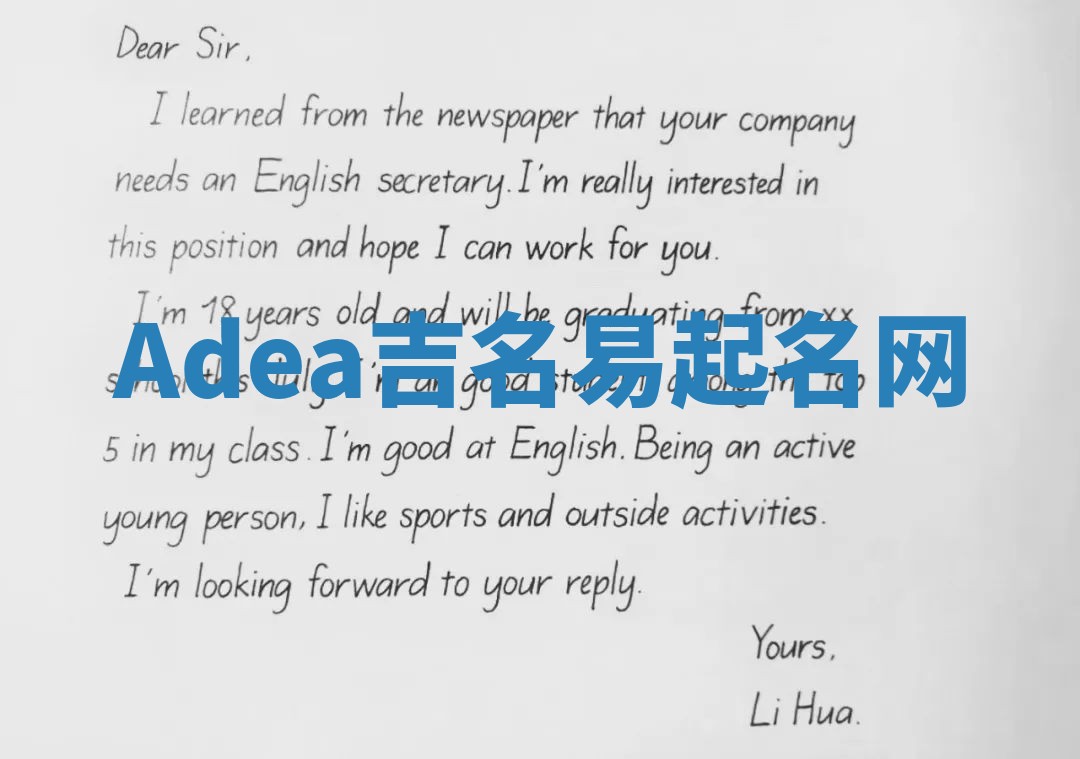 Dear Sir,
I learned from the newspaper that your company
needs an English secretary. I'm really interested in
this position and hope I can work for you.
I'm 18 years old and will be graduating from xx
Adea吉名易起名网
school this July. I'm good student among the top
5 in my class. I'm good at English. Being an active
young person, I like sports and outside activities.
I'm looking forward to your reply.
Yours,
Li Hua.